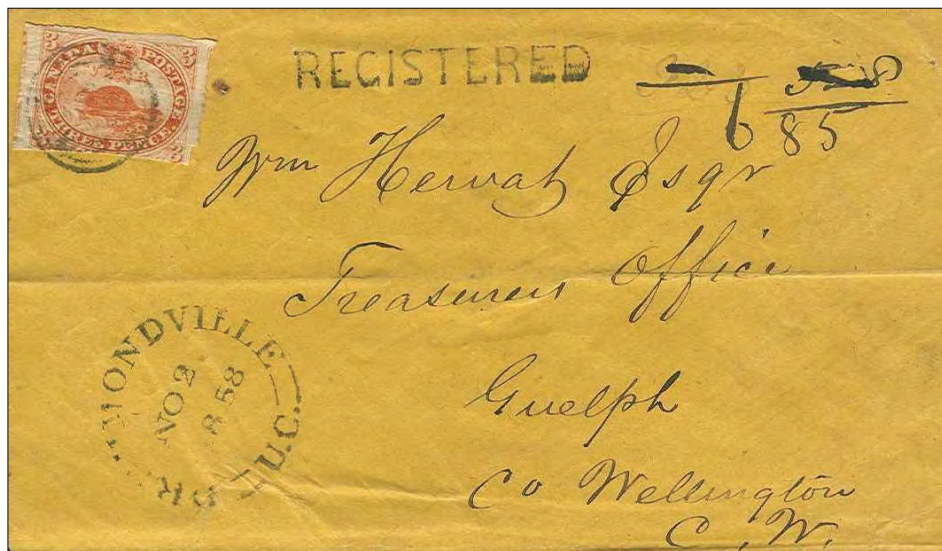 3 CANADA POSTAGE 3
3 THREE PENCE 3
REGISTERED
6 85
Wm Hewat Esqr
Treasurers Office
Guelph
Co Wellington
C. W.
MONDVILLE U.C.
NO 2
1858